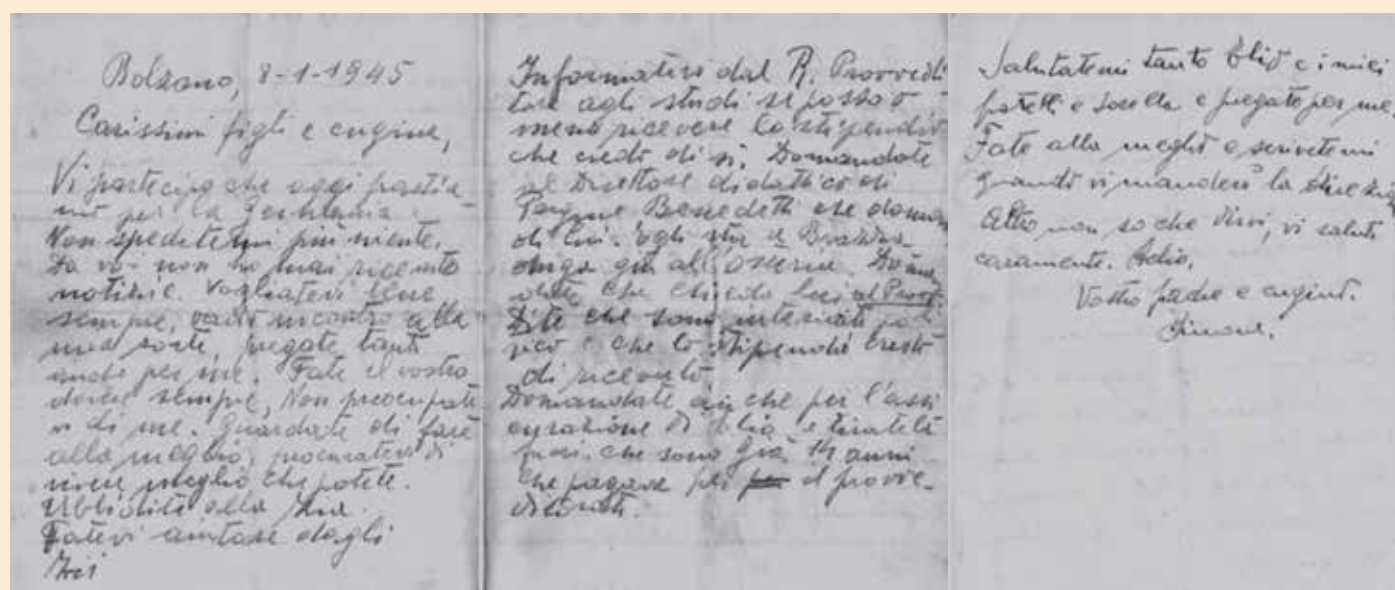 Bolzano, 8-1-1945
Carissimi figli e cugine,
Vi partecipo che oggi partia-
mo per la Germania.
Non speditemi più niente.
Da voi non ho mai ricevuto
notizie. Vogliatevi bene
sempre, vado incontro alla
mia sorte, pregate tanto
anche per me. Fate il vostro
dovere sempre, Non preocupate
vi di me. Guardate di fare
alla meglio, procuratevi di
vivere meglio che potete.
Ubbidite alla zia.
Fatevi aiutare dagli
Zii
Informatevi dal R. Provvedi
tore agli studi se posso o
meno ricevere lo stipendio
che credo di si. Domandate
al Direttore didattico di
Benedetti che doman
di lui. Egli sta a Brazza
già all'osteria. Doman
date che chieda lui al Provv.
Dite che sono internato poli
tico e che lo stipendio credo
di riceverlo.
Domandate anche per l'assi
curazione di Elio e tiratela
che sono già 14 anni
che pagava per il provve-
ditorato.
Salutatemi tanto Elio e i miei
fratelli e sorella e pregate per me.
Fate alla meglio e scrivetemi
quando vi manderò la direzione
Altro non so che dirvi, vi saluto
caramente. Adio,
Vostro padre e cugino.
Simone.